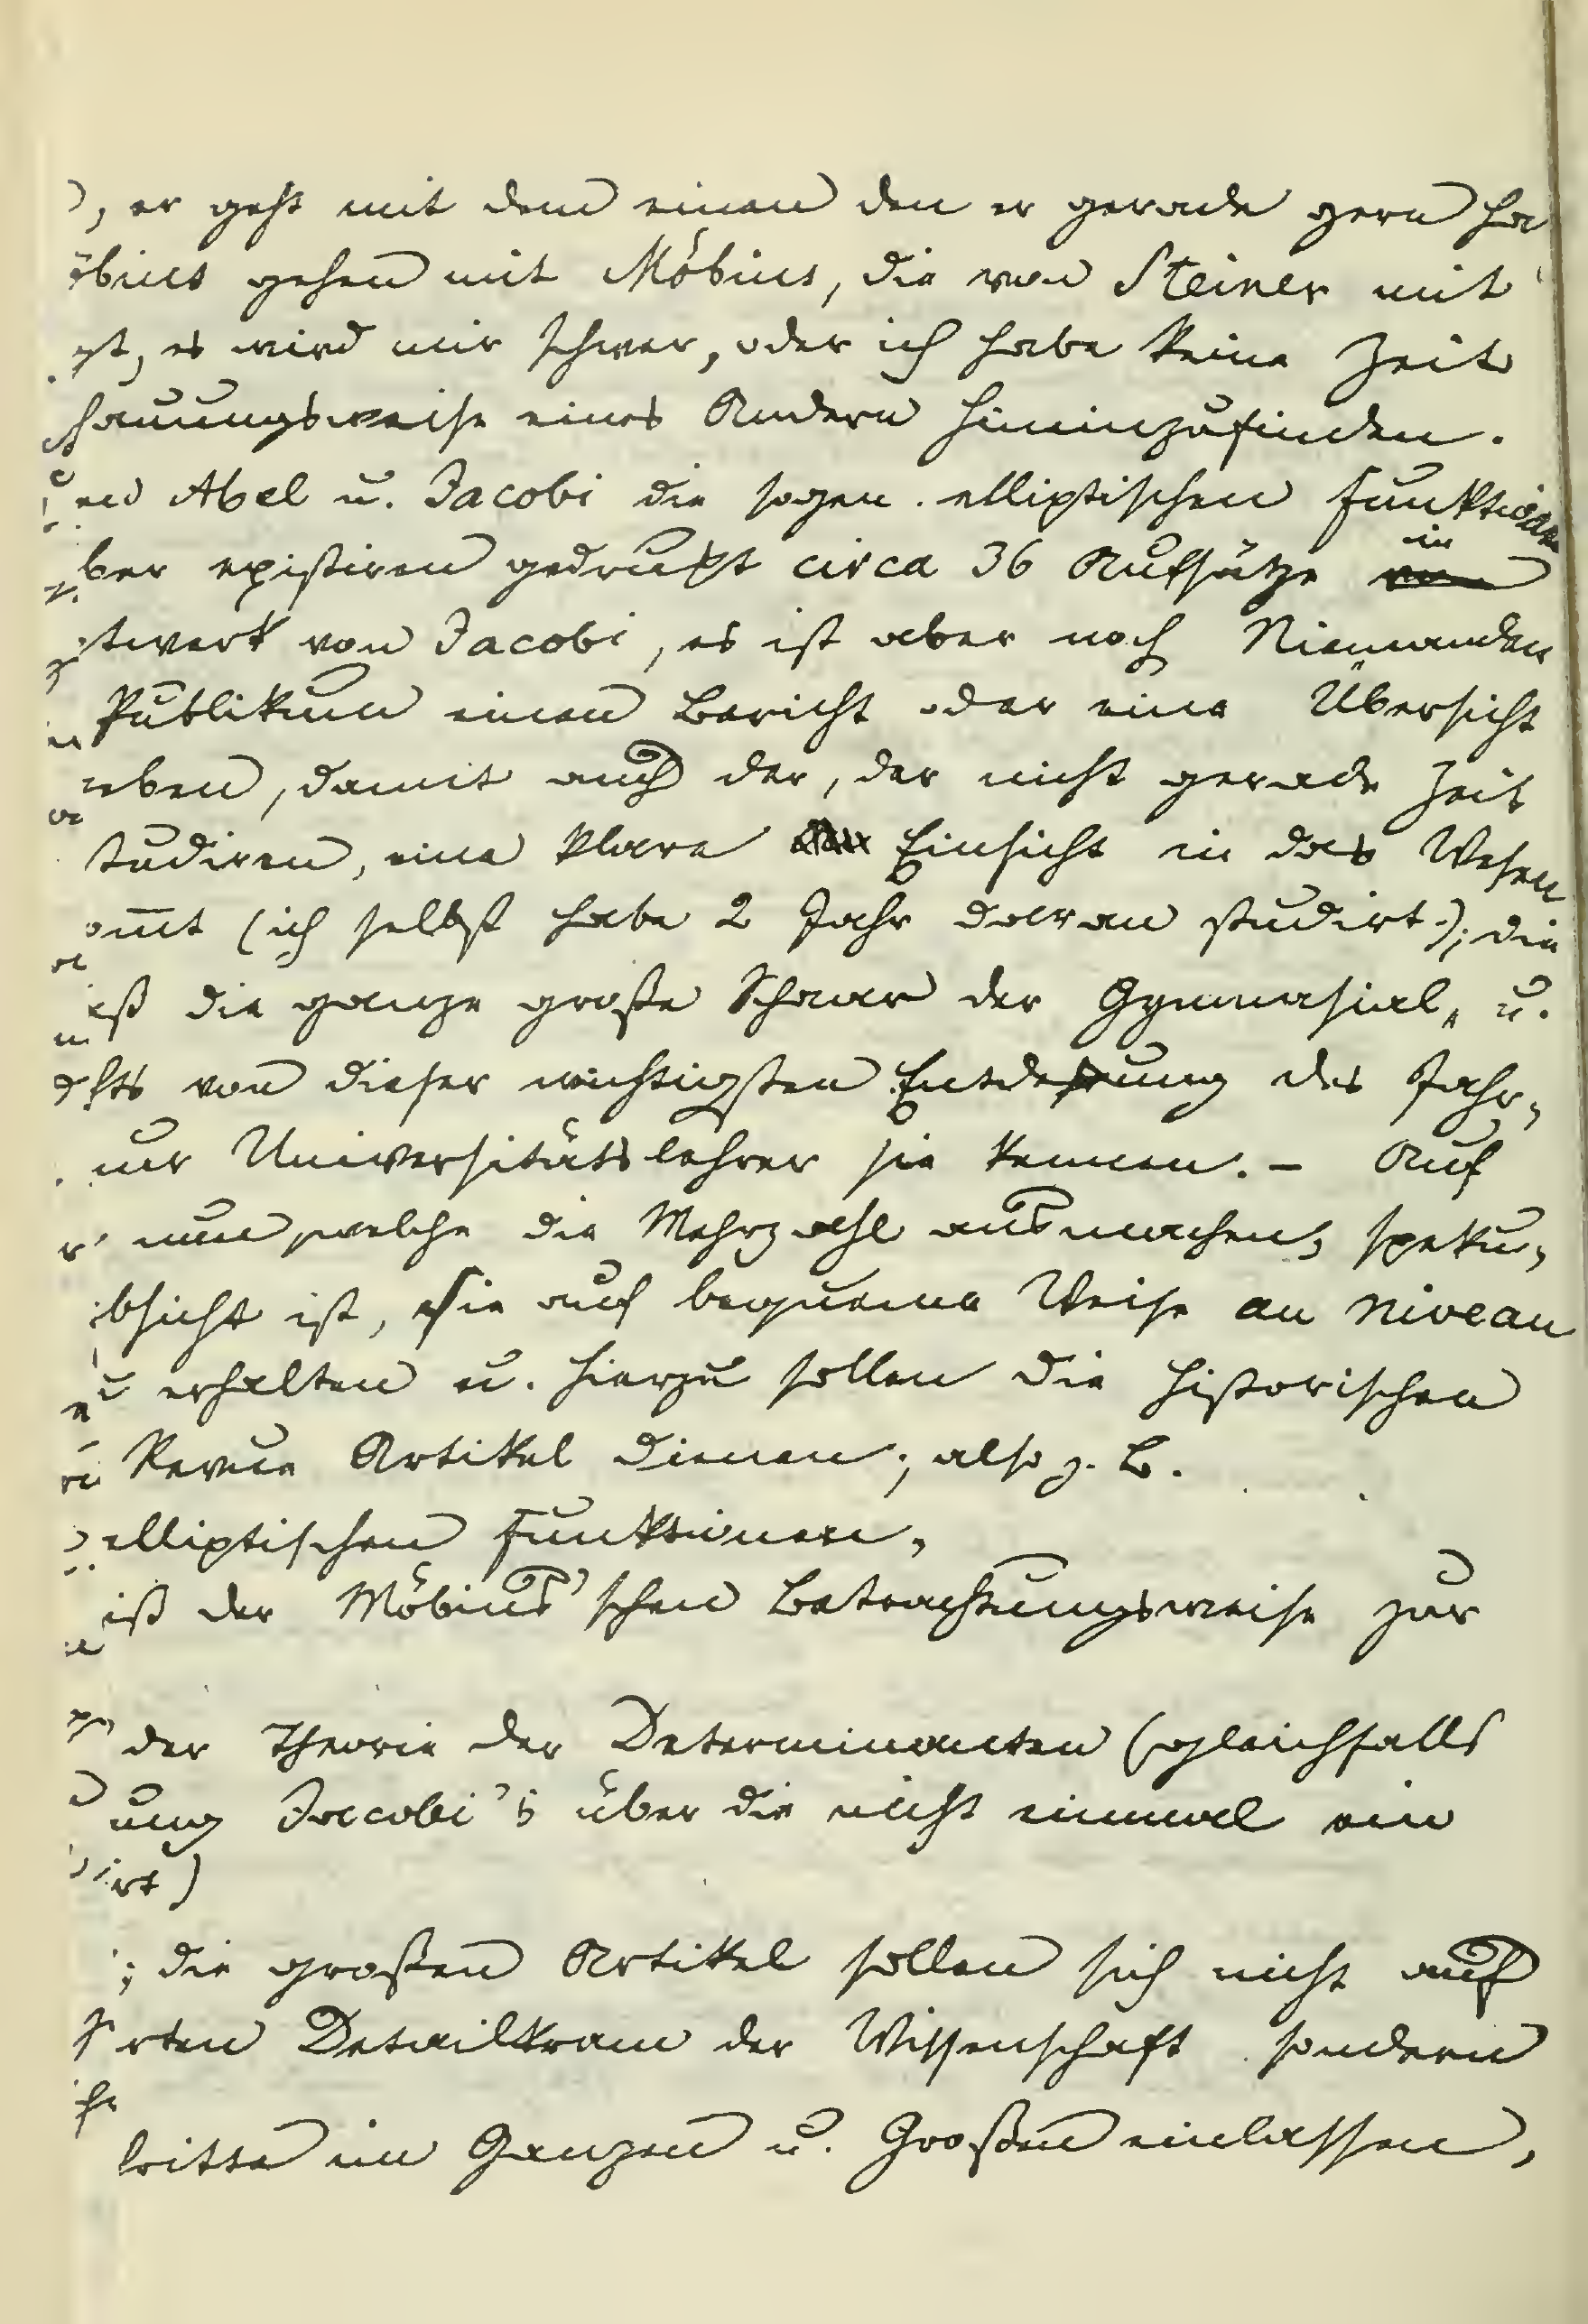 , er geht mit dem einen den er gerade gern ha
öbius gehen mit Möbius, die von Steiner mit
gt, es wird mir schwer, oder ich habe keine Zeit
schauungsweise eines Andern hineinzufinden.
Abel u. Jacobi die sogen. elliptischen Funktionen
ber existiren gedrukt circa 36 Aufsätze in
twerk von Jacobi, es ist aber noch Niemanden
Publikum einen Bericht oder eine Übersicht
eben, damit auch der, der nicht gerade Zeit
studiren, eine klare Einsicht in das Wesen
omt (ich selbst habe 2 Jahr daran studirt); die
ß die ganze große Schaar der Gymnasial- u.
chts von dieser wichtigsten Entdekung des Jahr-
nur Universitätslehrer sie kennen. – Auf
nun, welche die Mehrzahl ausmachen, speku-
bsicht ist, sie auf bequeme Weise au niveau
zu erhalten u. hierzu sollen die historischen
Revue Artikel dienen; also z. B.
elliptischen Funktionen,
iß der Möbius'schen Betrachtungsweise zur
der Theorie der Determinanten (gleichfalls
ung Jacobi's über die nicht einmal ein
irt)
; die großen Artikel sollen sich nicht auf
rten Detailkram der Wissenschaft sondern
ritte im Ganzen u. Großen einlassen,